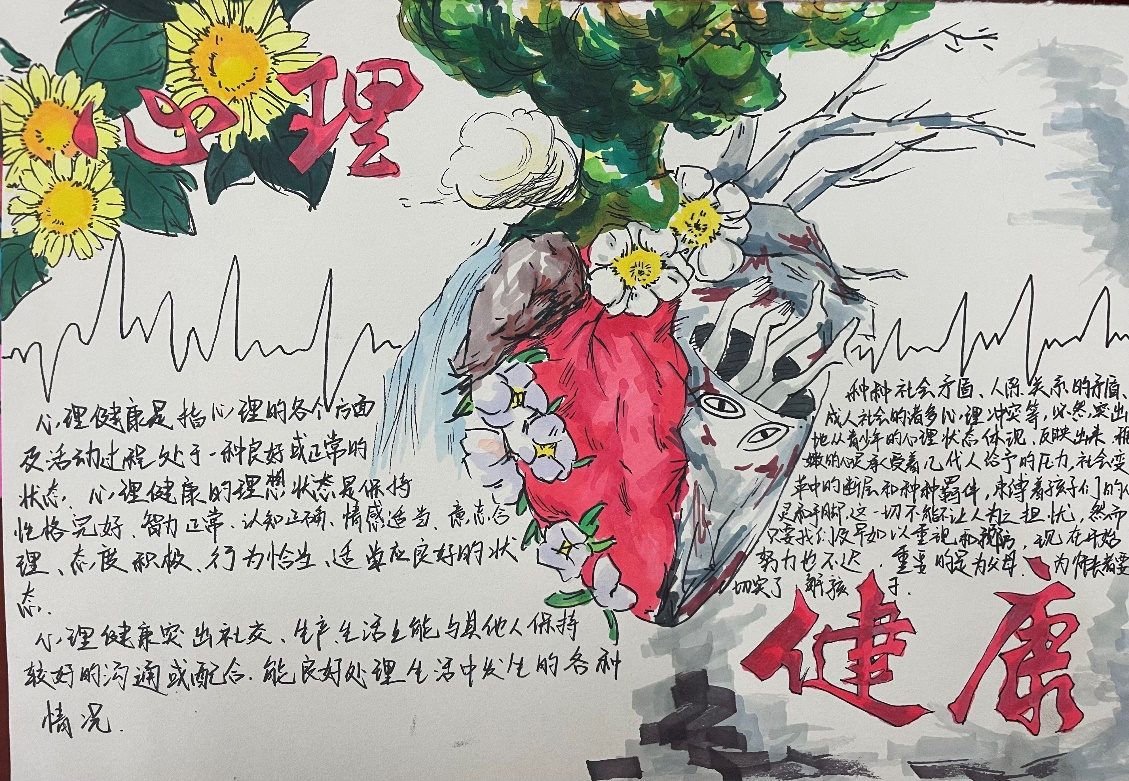 心理
心理健康是指心理的各个方面
及活动过程处于一种良好或正常的
状态。心理健康的理想状态是保持
性格完好、智力正常、认知正确、情感适当、意志合
理、态度积极、行为恰当、适应良好的状
态.
心理健康突出社交、生产生活上能与其他人保持
较好的沟通或配合.能良好处理生活中发生的各种
情况.
种种社会矛盾、人际关系的矛盾、
成人社会的诸多心理冲突等,必然突出
地从青少年的心理状态体现、反映出来 稚
嫩的心灵承受着几代人给予的压力,社会变
革中的断层和种种羁绊,束缚着孩子们的心
灵和手脚,这一切不能不让人为之担忧,然而
只要我们及早加以重视和预防,现在开始
努力也不迟,重要的是为父母、为师长者要
切实了解孩子.
健康